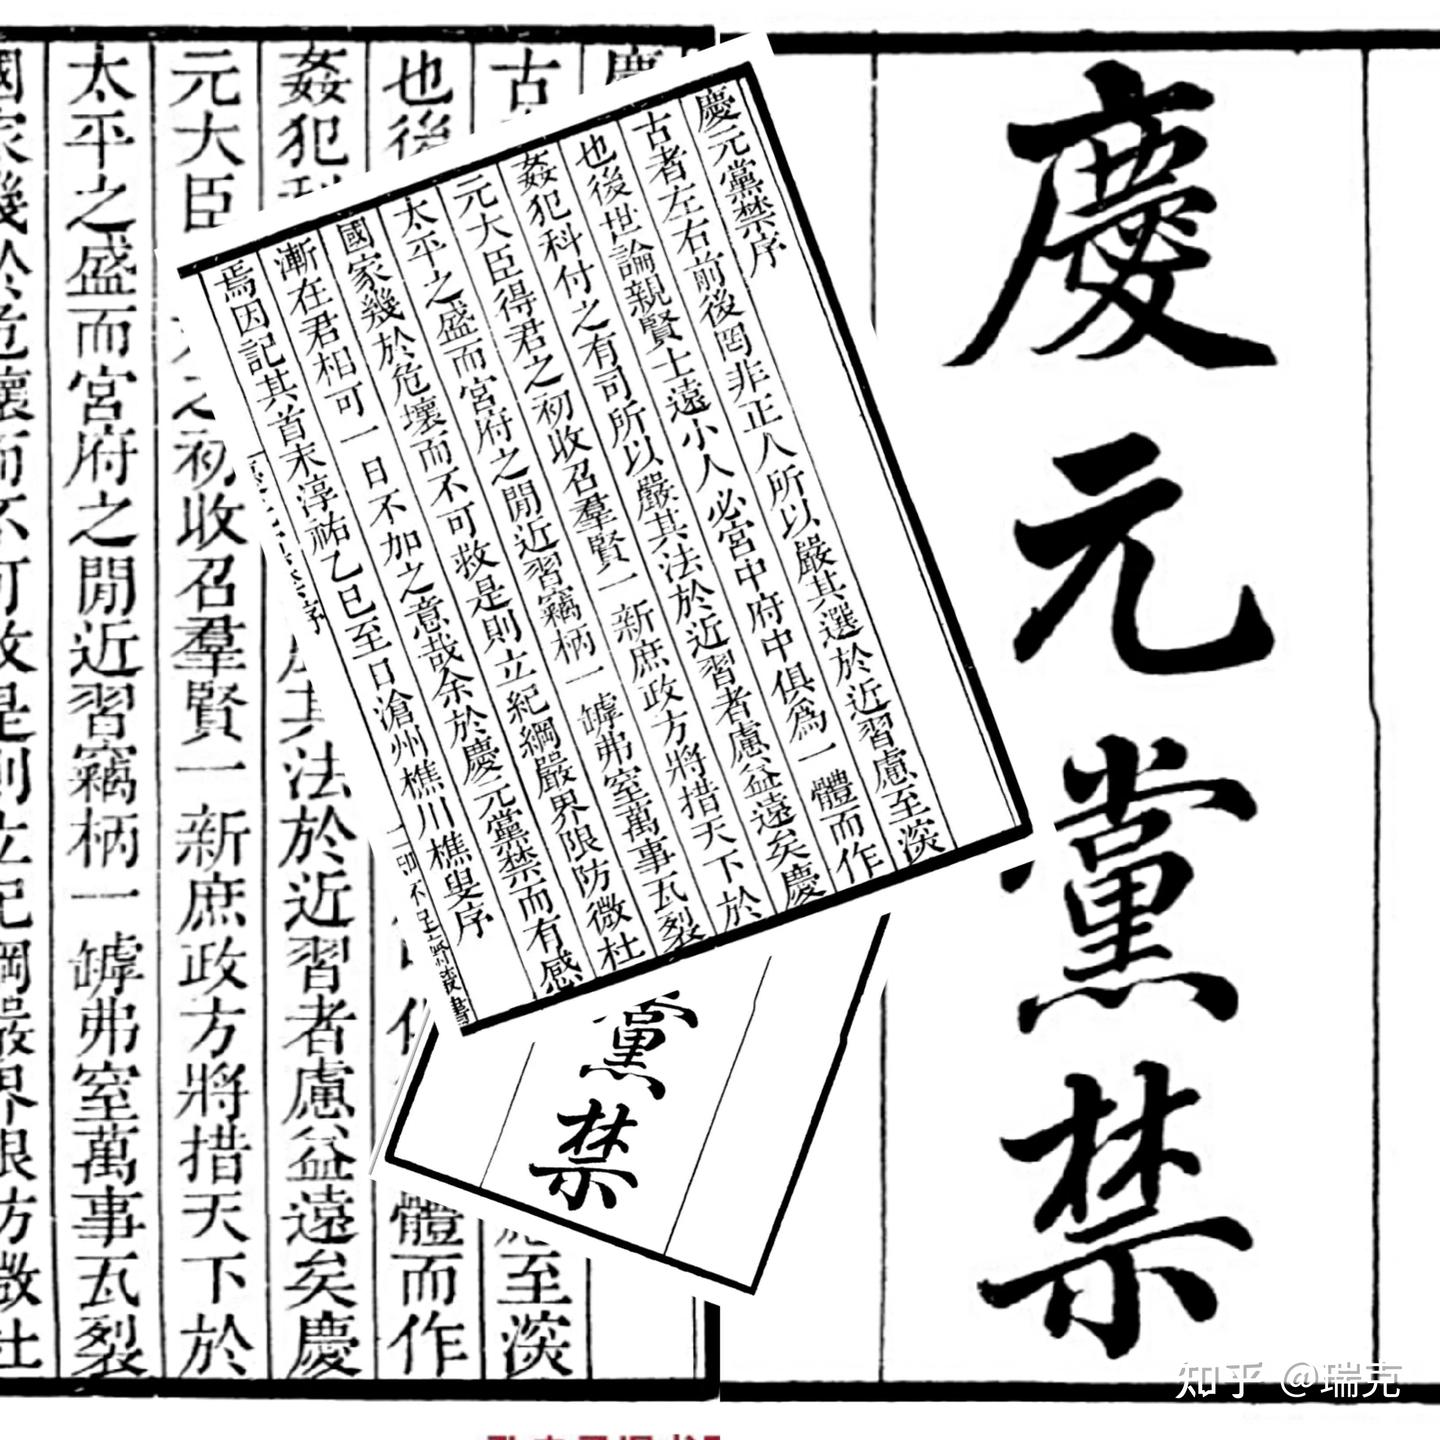 慶元黨禁
慶元黨禁序
古者左右前後罔非正人所以嚴其選於近習慮至深
也後世論親賢士遠小人必宮中府中俱爲一體而作
姦犯科付之有司所以嚴其法於近習者慮益遠矣慶
元大臣得君之初收召羣賢一新庶政方將措天下於
太平之盛而宮府之閒近習竊柄一罅弗窒萬事瓦裂
國家幾於危壞而不可救是則立紀綱嚴界限防微杜
漸在君相可一日不加之意哉余於慶元黨禁而有感
焉因記其首末淳祐乙巳至日滄州樵川樵叟序
黨禁
慶
古 至深
也後 體而作
姦犯 其法於近習者慮益遠矣慶
元大臣 之初收召羣賢一新庶政方將措天下於
太平之盛而宮府之閒近習竊柄一罅弗窒萬事瓦裂
國家幾於危壞而不可救是則立紀綱嚴界限防微杜
知乎 @瑞克